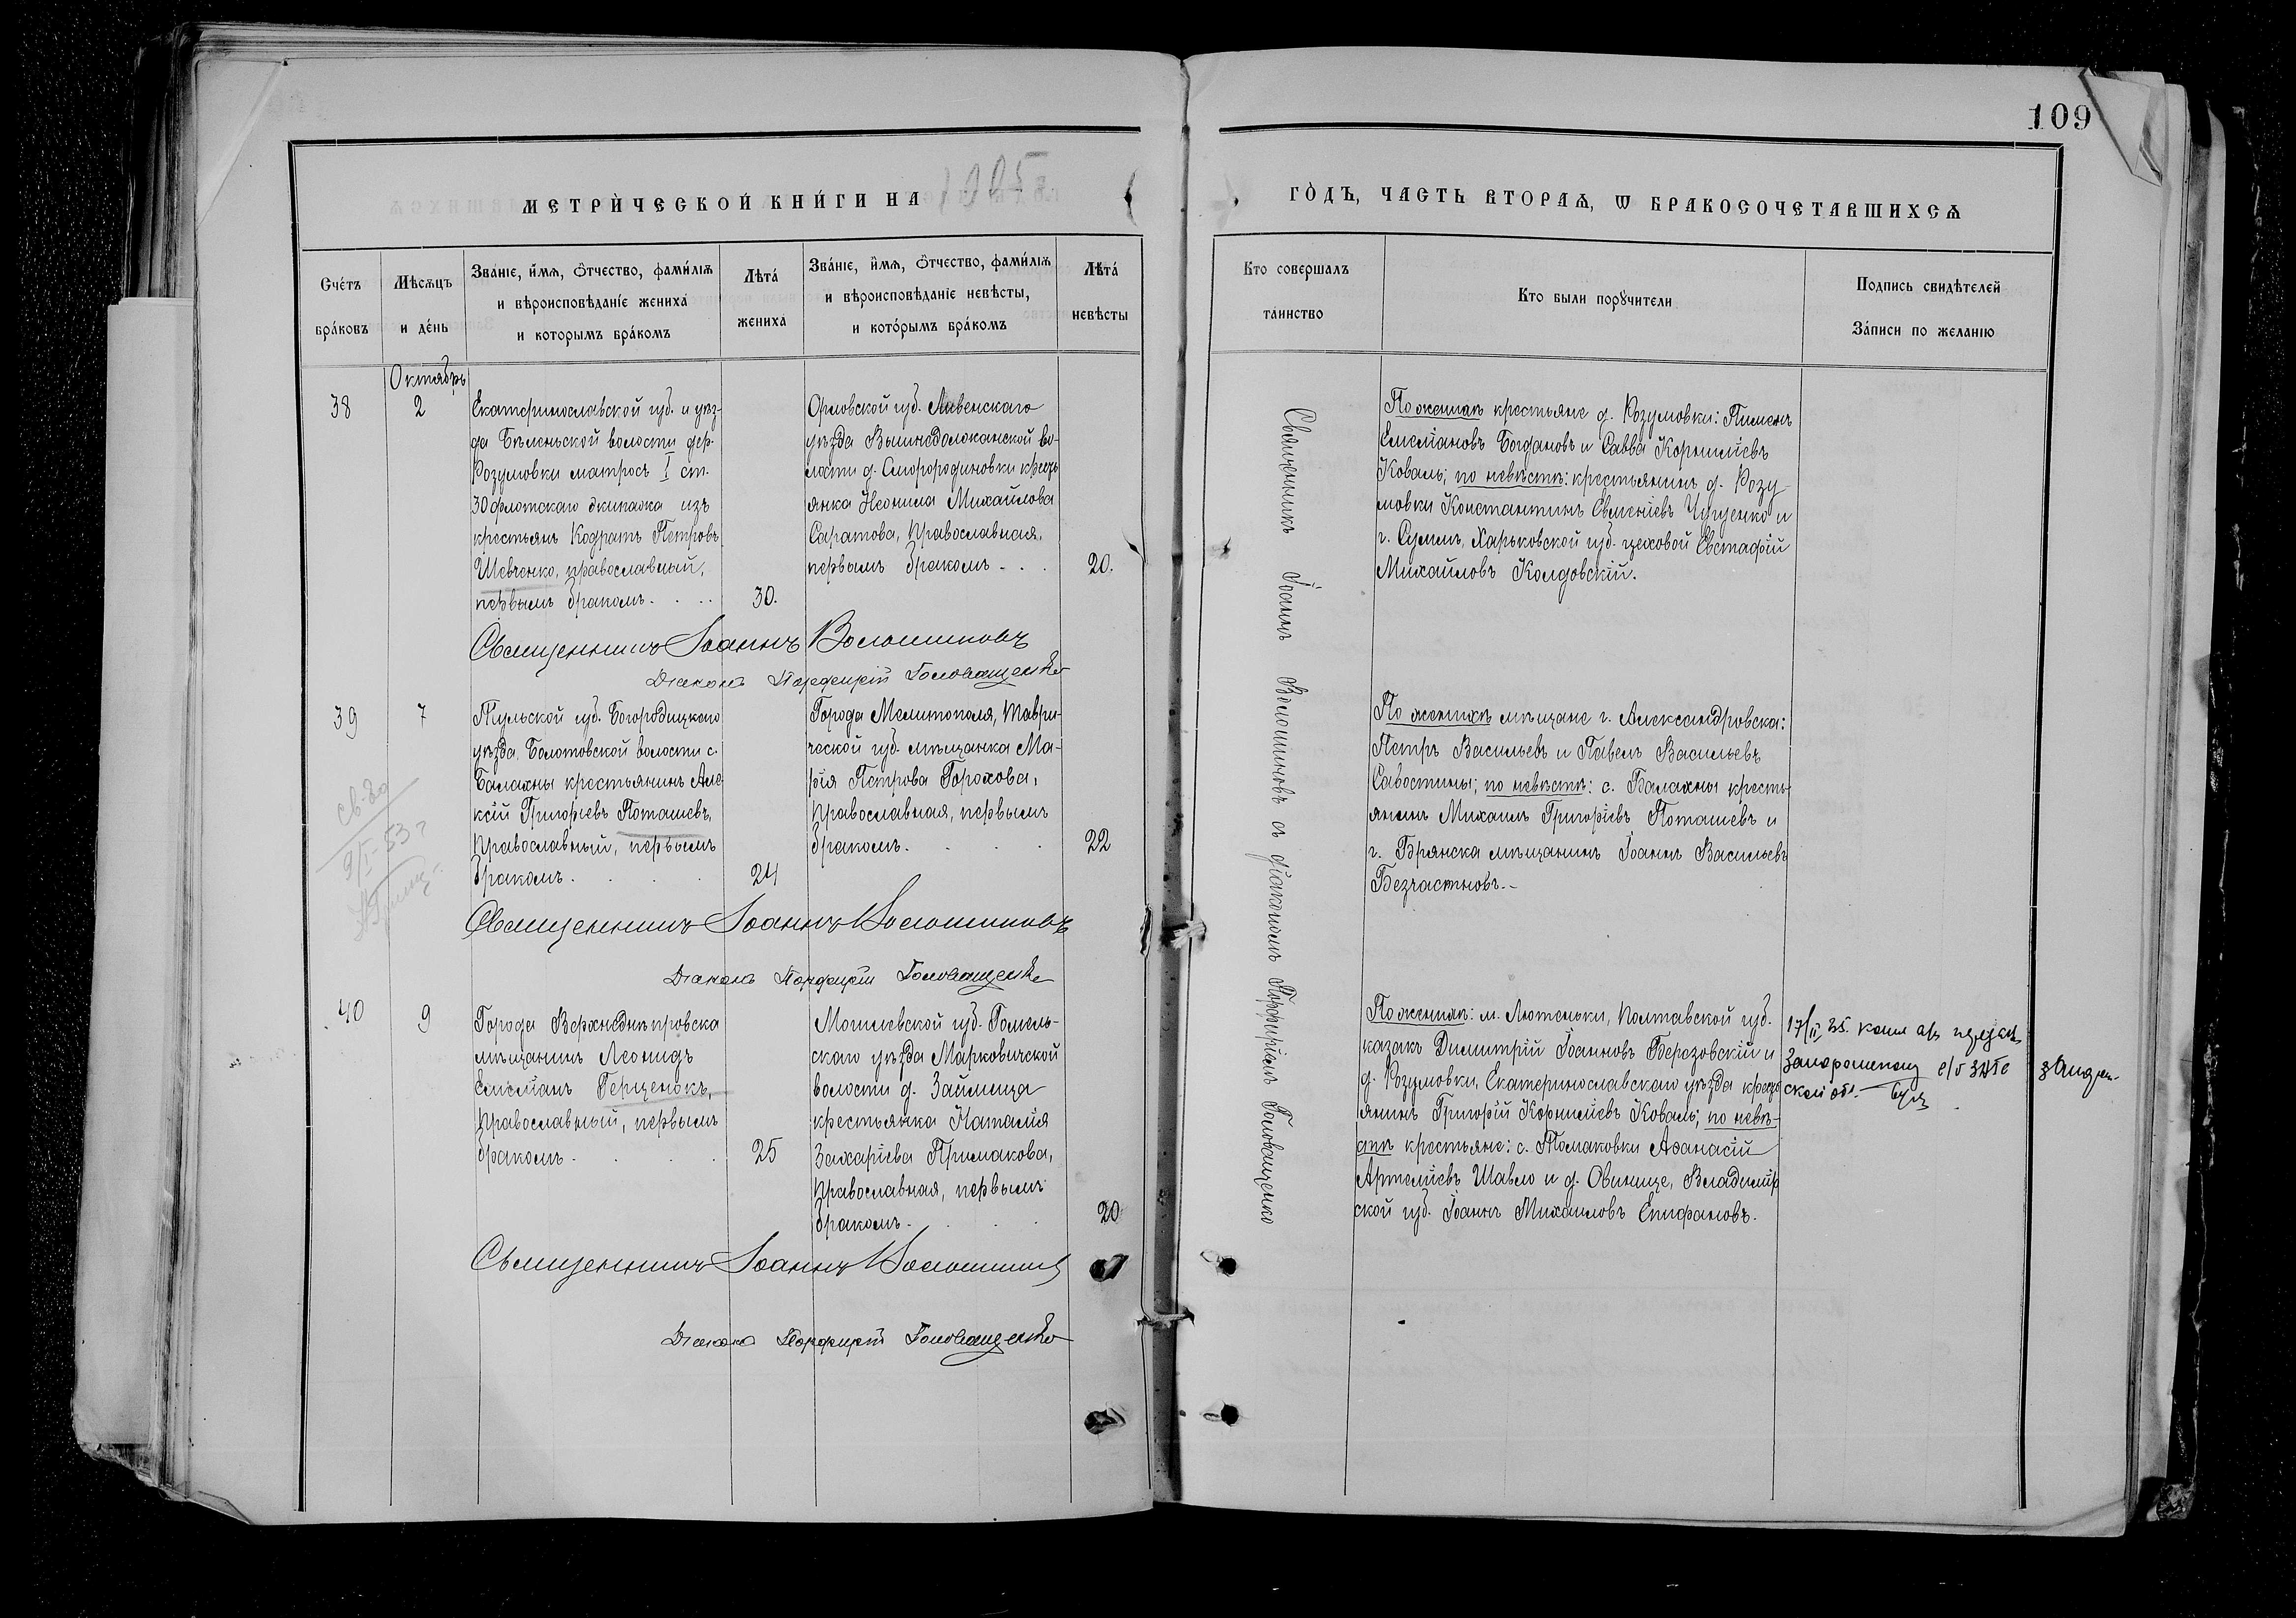 109
МЕТРИ́ЧЕСКОЙ КНИ́ГИ НА 1905 г.
ГО́ДЪ, ЧАСТЬ ВТОРАѦ, Ѡ БРАКОСОЧЕТАВШИХСѦ
Сче́тъ бра́ковъ
Мѣсѧцъ и де́нь
Зва́нїе, и́мѧ, ѻ҆́тчество, фами́лїѧ
и вѣроисповѣда́нїе жениха̀
и которымъ бра́комъ
Лѣта́ жениха̀
Зва́нїе, и́мѧ, ѻ҆́тчество, фами́лїѧ
и вѣроисповѣда́нїе невѣ́сты,
и кото́рымъ бра́комъ
Лѣта́ невѣсты
Кто совершалъ таинство
Кто были порꙋчители
Подпись свидѣтелей
За́писи по желанію
Октябрь
38
2
Екатеринославской губ. и уѣз-
да Бѣленьской волости дер.
Розумовки матросъ I ст.
30 флотскаго экипажа изъ
крестьянъ Кодратъ Петровъ
Шевченко, православный,
первымъ бракомъ. . . .
30.
Орловской губ. Ливенскаго
уѣзда Вышнедолжанской во-
лости д. Смородиновки кресть
янка Неонила Михайлова
Саратова, православная,
первымъ бракомъ . . .
20.
Священникъ Іоаннъ Волошиновъ
Діаконъ Порфирій Головащенко
По женихѣ крестьяне д. Розумовки: Пименъ
Емеліановъ Богдановъ и Савва Корниліевъ
Коваль; по невѣстѣ: крестьянинъ д. Розу-
мовки Константинъ Евменіевъ Чущенко и
г. Сумъ, Харьковской губ. цеховой Евстафій
Михайловъ Колдовскій.
39
7
Тульской губ. Богородицкаго
уѣзда Болотовской волости с.
Балахны крестьянинъ Але
ксій Григоріевъ Поташевъ,
православный, первымъ
бракомъ. . . .
24
Города Мелитополя, Таври-
ческой губ. мѣщанка Ма-
рія Петрова Горохова,
православная, первымъ
бракомъ. . . .
22
9/I-53 г
Священникъ Іоаннъ Волошиновъ
Діаконъ Порфирій Головащенко
По женихѣ мѣщане г. Александровска:
Петръ Васильевъ и Павелъ Васильевъ
Савостины; по невѣстѣ: с. Балахны кресть-
янинъ Михаилъ Григоріевъ Поташевъ и
г. Брянска мѣщанинъ Іоаннъ Васильевъ
Безчастновъ.-
40
9
Города Верхнеднѣпровска
мѣщанинъ Леонидъ
Емеліанъ Герценокъ,
православный, первымъ
бракомъ. . . .
25
Могилевской губ. Гомель-
скаго уѣзда Марковичской
волости д. Займища
крестьянка Наталія
Захаріева Примакова,
православная, первымъ
бракомъ. . . .
20
Священникъ Іоаннъ Волошиновъ
Діаконъ Порфирій Головащенко
По женихѣ: м. Лютеньки, Полтавской губ.
казакъ Димитрій Іоанновъ Березовскій и
д. Розумовки, Екатеринославскаго уѣзда кресть
янинъ Григорій Корниліевъ Коваль; по невѣ-
стѣ крестьяне: с. Томаковки Аѳанасій
Артеміевъ Шавло и д. Овинище, Владимір
ской губ. Іоаннъ Михаиловъ Епифановъ.
Священникъ Іоаннъ Волошиновъ съ діакономъ Порфиріемъ Головащенко